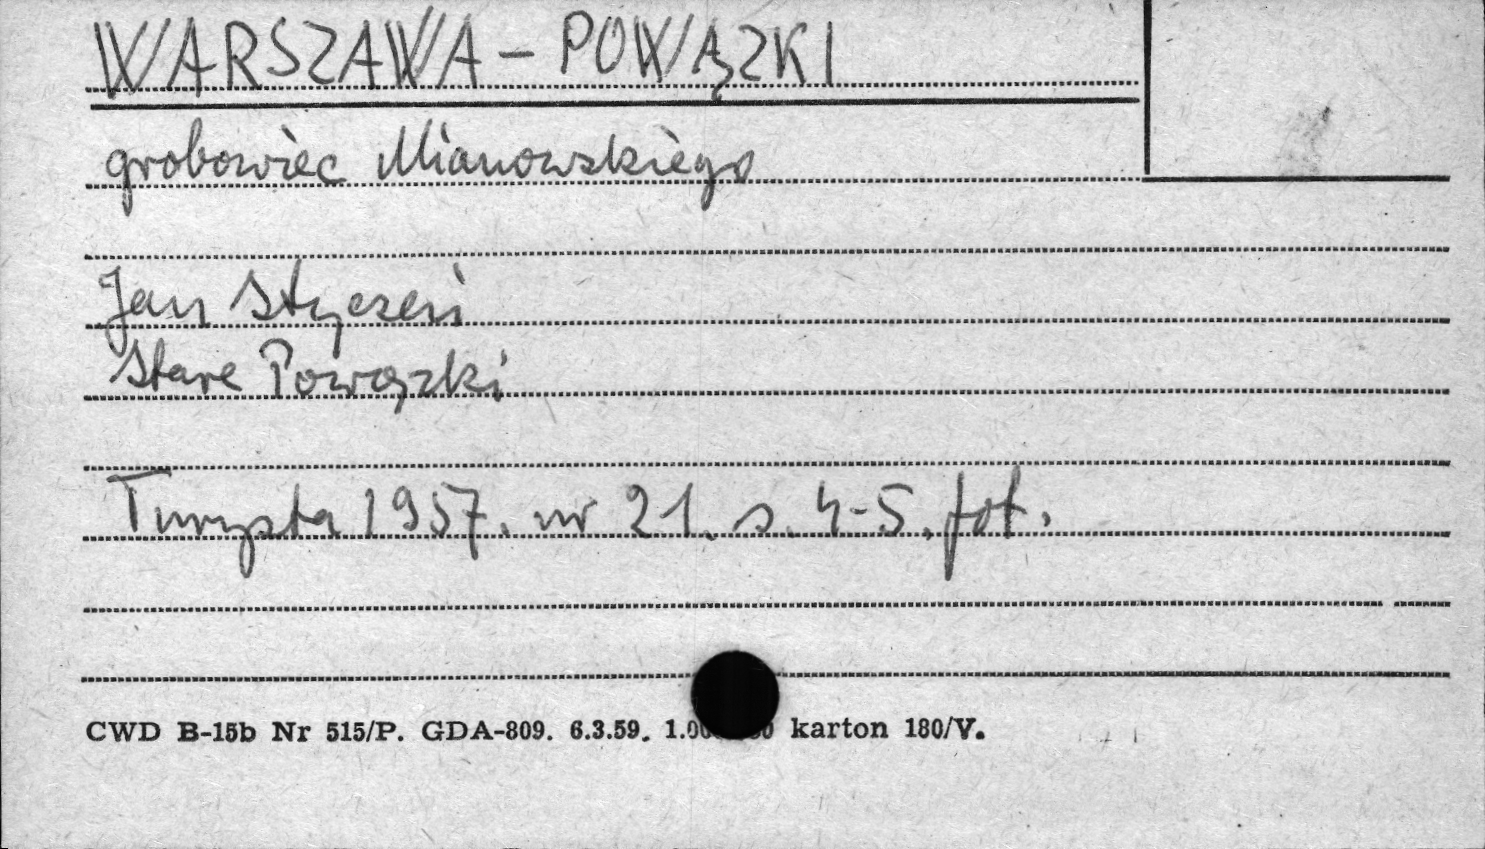 WARSZAWA - POWĄZKI
grobowiec Mianowskiego
Jan Styczeń
Stare Powązki
Turysta 1957. nr 21. s. 4-5. fot.
CWD B-15b Nr 515/P. GDA-809. 6.3.59. karton 180/V.